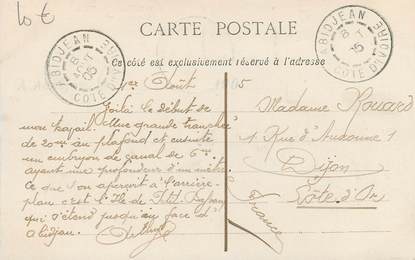 10 €
CARTE POSTALE
Ce côté est exclusivement réservé à l'adresse
ABIDJEAN
8
AOUT
05
COTE D'IVOIRE
ABIDJEAN
8
05
COTE D'IVOIRE
1er Août 05
Voilà le début de
mon travail. Une grande tranchée
de 20m au plafond et ensuite
un embryon de canal de 6m
ayant une profondeur d'un mètre
Ce que l'on aperçoit à l'arrière-
plan c'est l'Ile de Petit-Bassam
qui s'étend jusqu'en face d'
Abidjan.
Madame Rouard
1 Rue d'Auxonne 1
Dijon
Côte d'Or
France